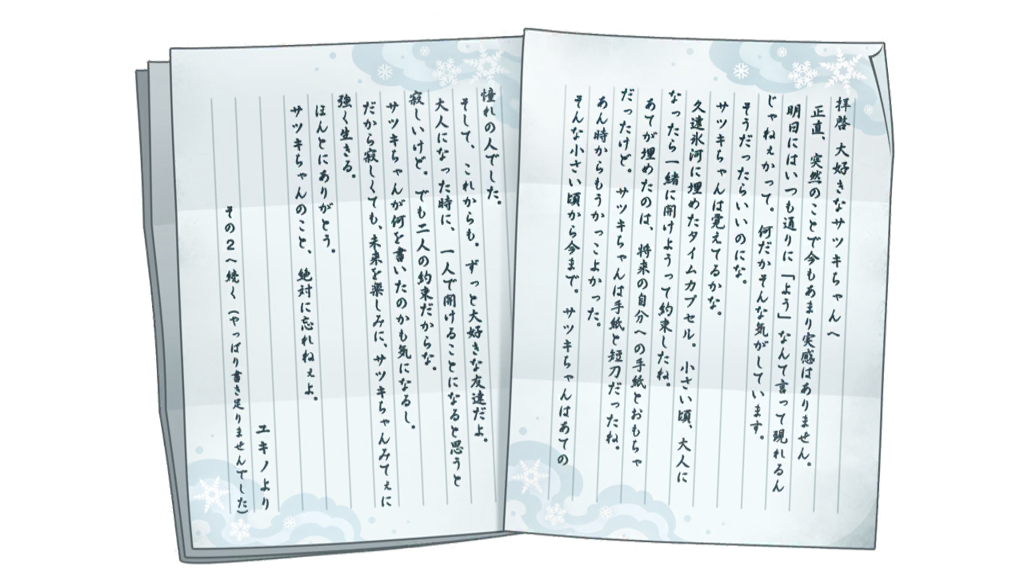 拝啓 大好きなサツキちゃんへ
正直、突然のことで今もあまり実感はありません。
明日にはいつも通りに「よう」なんて言って現れるん
じゃねぇかって。何だかそんな気がしています。
そうだったらいいのにな。
サツキちゃんは覚えてるかな。
久遠氷河に埋めたタイムカプセル。小さい頃、大人に
なったら一緒に開けようって約束したね。
あてが埋めたのは、将来の自分への手紙とおもちゃ
だったけど。サツキちゃんは手紙と短刀だったね。
あん時からもうかっこよかった。
そんな小さい頃から今まで。サツキちゃんはあての
憧れの人でした。
そして、これからも。ずっと大好きな友達だよ。
大人になった時に、一人で開けることになると思うと
寂しいけど。でも二人の約束だからな。
サツキちゃんが何を書いたのかも気になるし。
だから寂しくても、未来を楽しみに、サツキちゃんみてぇに
強く生きる。
ほんとにありがとう。
サツキちゃんのこと、絶対に忘れねぇよ。
ユキノより
その2へ続く(やっぱり書き足りませんでした)